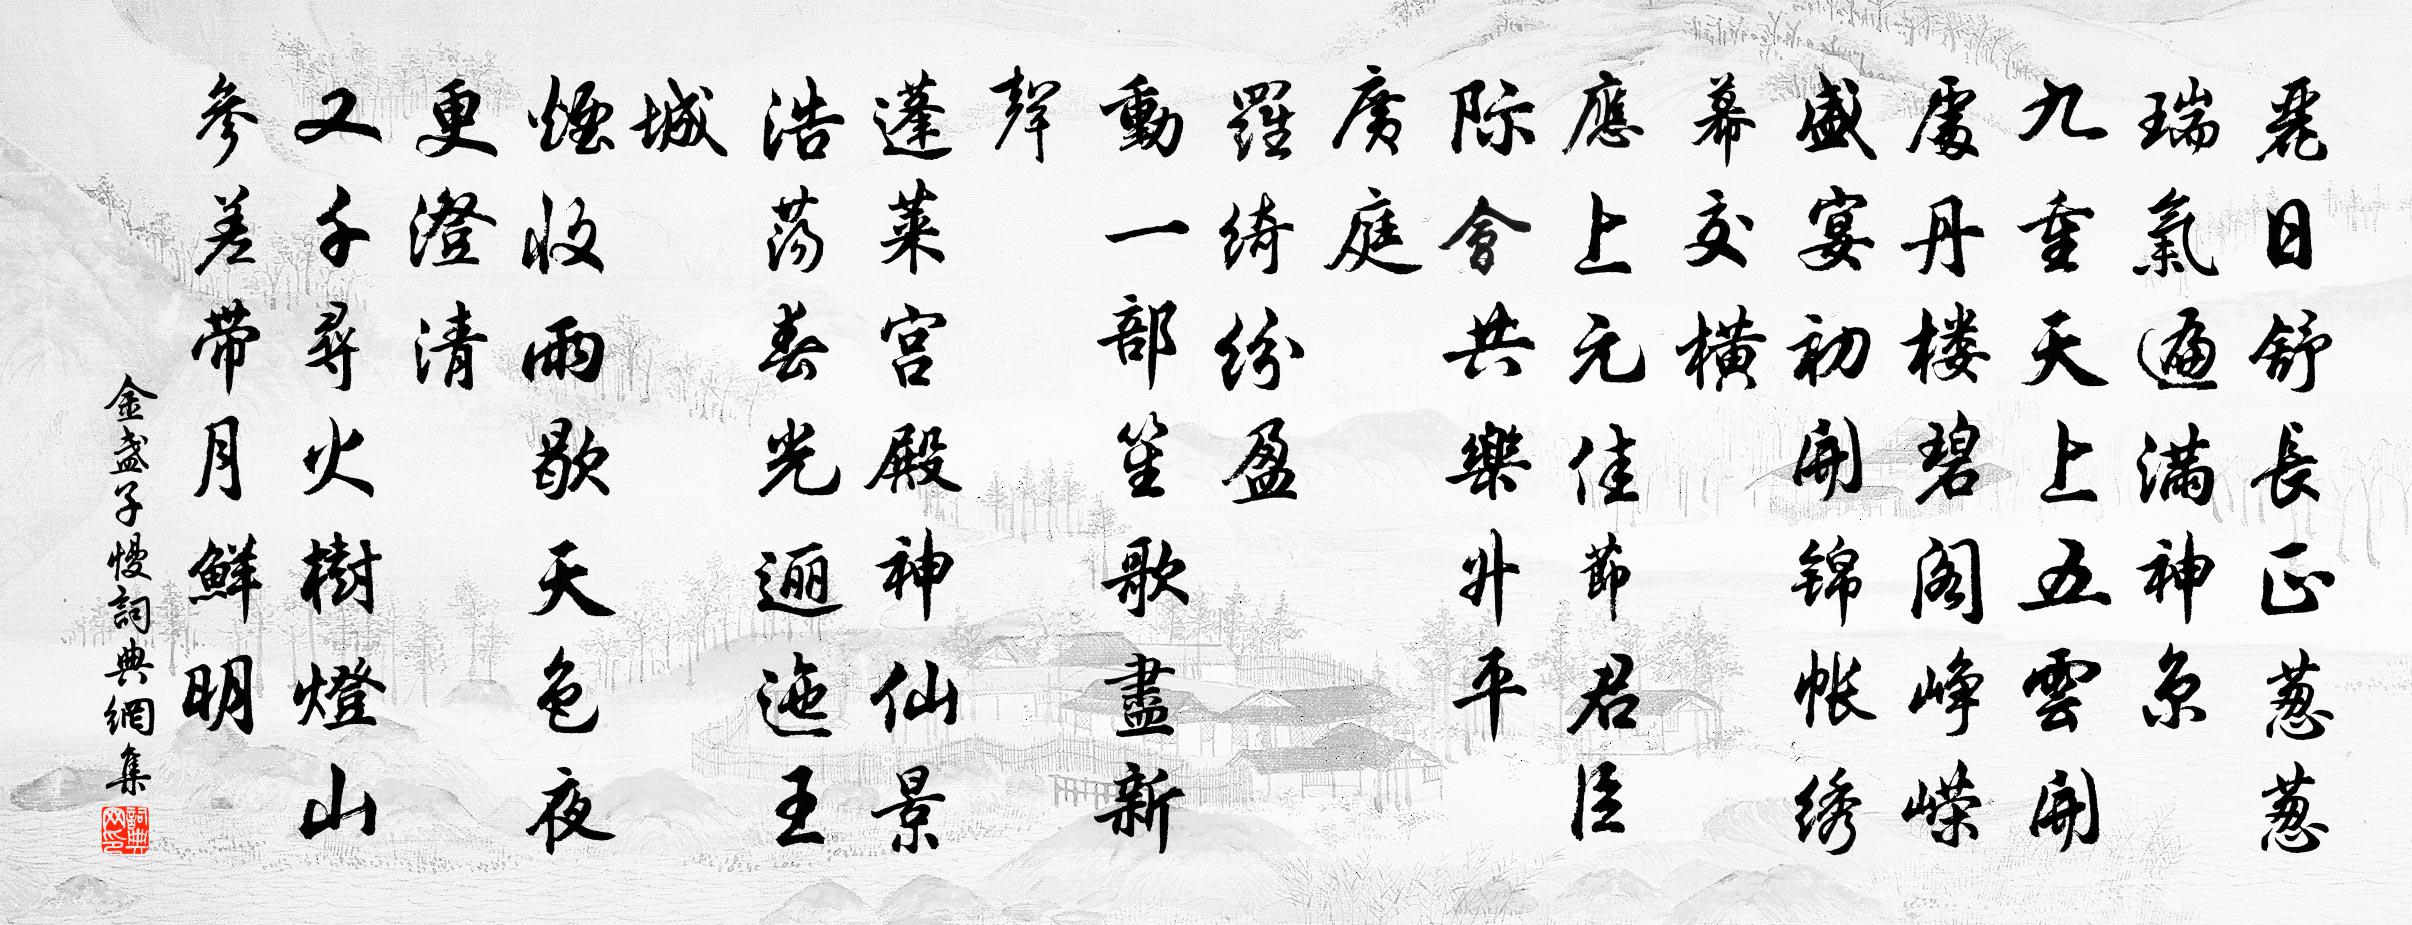 麗日舒長正葱葱
瑞氣遍滿神京
九重天上五雲開
處丹楼碧阁峥嵘
盛宴初開锦帐绣
幕交横
應上元佳節君臣
际會共樂升平
廣庭
羅绮纷盈
動一部笙歌盡新
聲
蓬莱宫殿神仙景
浩荡春光逦迤王
城
煙收雨歇天色夜
更澄清
又千尋火樹燈山
參差带月鮮明
金盞子慢詞典網集
詞典网印